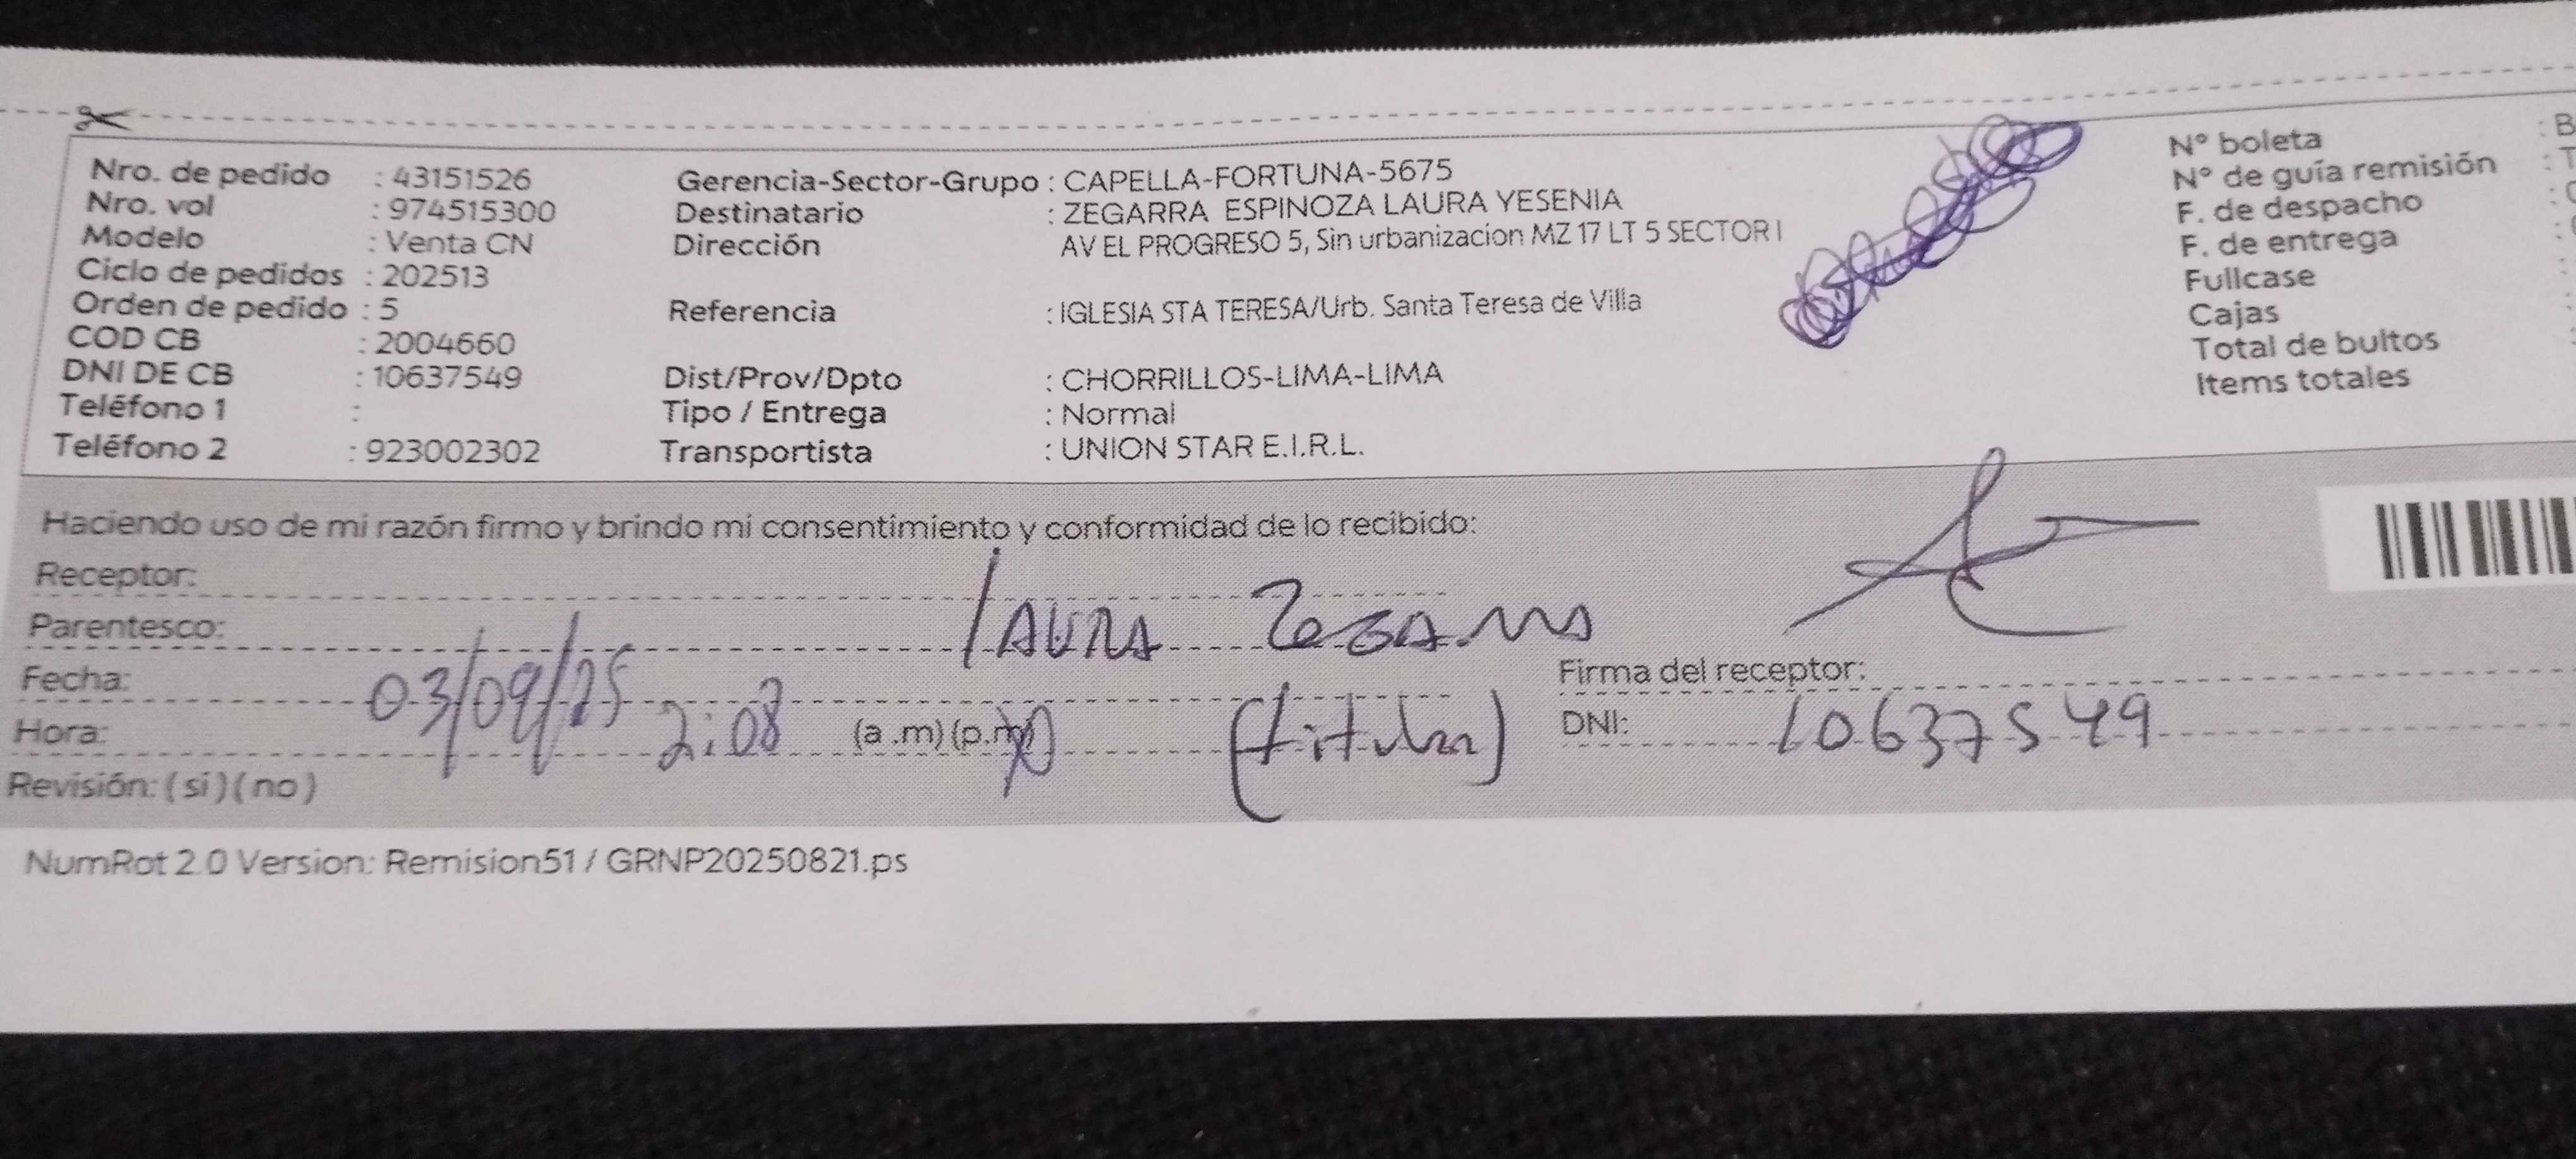 Nro. de pedido : 43151526
Nro. vol : 974515300
Modelo : Venta CN
Ciclo de pedidos : 202513
Orden de pedido : 5
COD CB : 2004660
DNI DE CB : 10637549
Teléfono 1 :
Teléfono 2 : 923002302
Gerencia-Sector-Grupo : CAPELLA-FORTUNA-5675
Destinatario : ZEGARRA ESPINOZA LAURA YESENIA
Dirección AV EL PROGRESO 5, Sin urbanizacion MZ 17 LT 5 SECTOR I
Referencia : IGLESIA STA TERESA/Urb. Santa Teresa de Villa
Dist/Prov/Dpto : CHORRILLOS-LIMA-LIMA
Tipo / Entrega : Normal
Transportista : UNION STAR E.I.R.L.
Nº boleta : B
Nº de guía remisión : T
F. de despacho :
F. de entrega :
Fullcase
Cajas
Total de bultos
Items totales
Haciendo uso de mi razón firmo y brindo mi consentimiento y conformidad de lo recibido:
Receptor:
Parentesco: LAURA
Fecha: 03/09/25
Hora: 2:08 (a .m) (p.m) (titular)
Revisión: ( si ) ( no )
Firma del receptor:
DNI: 10637549
NumRot 2.0 Version: Remision51 / GRNP20250821.ps